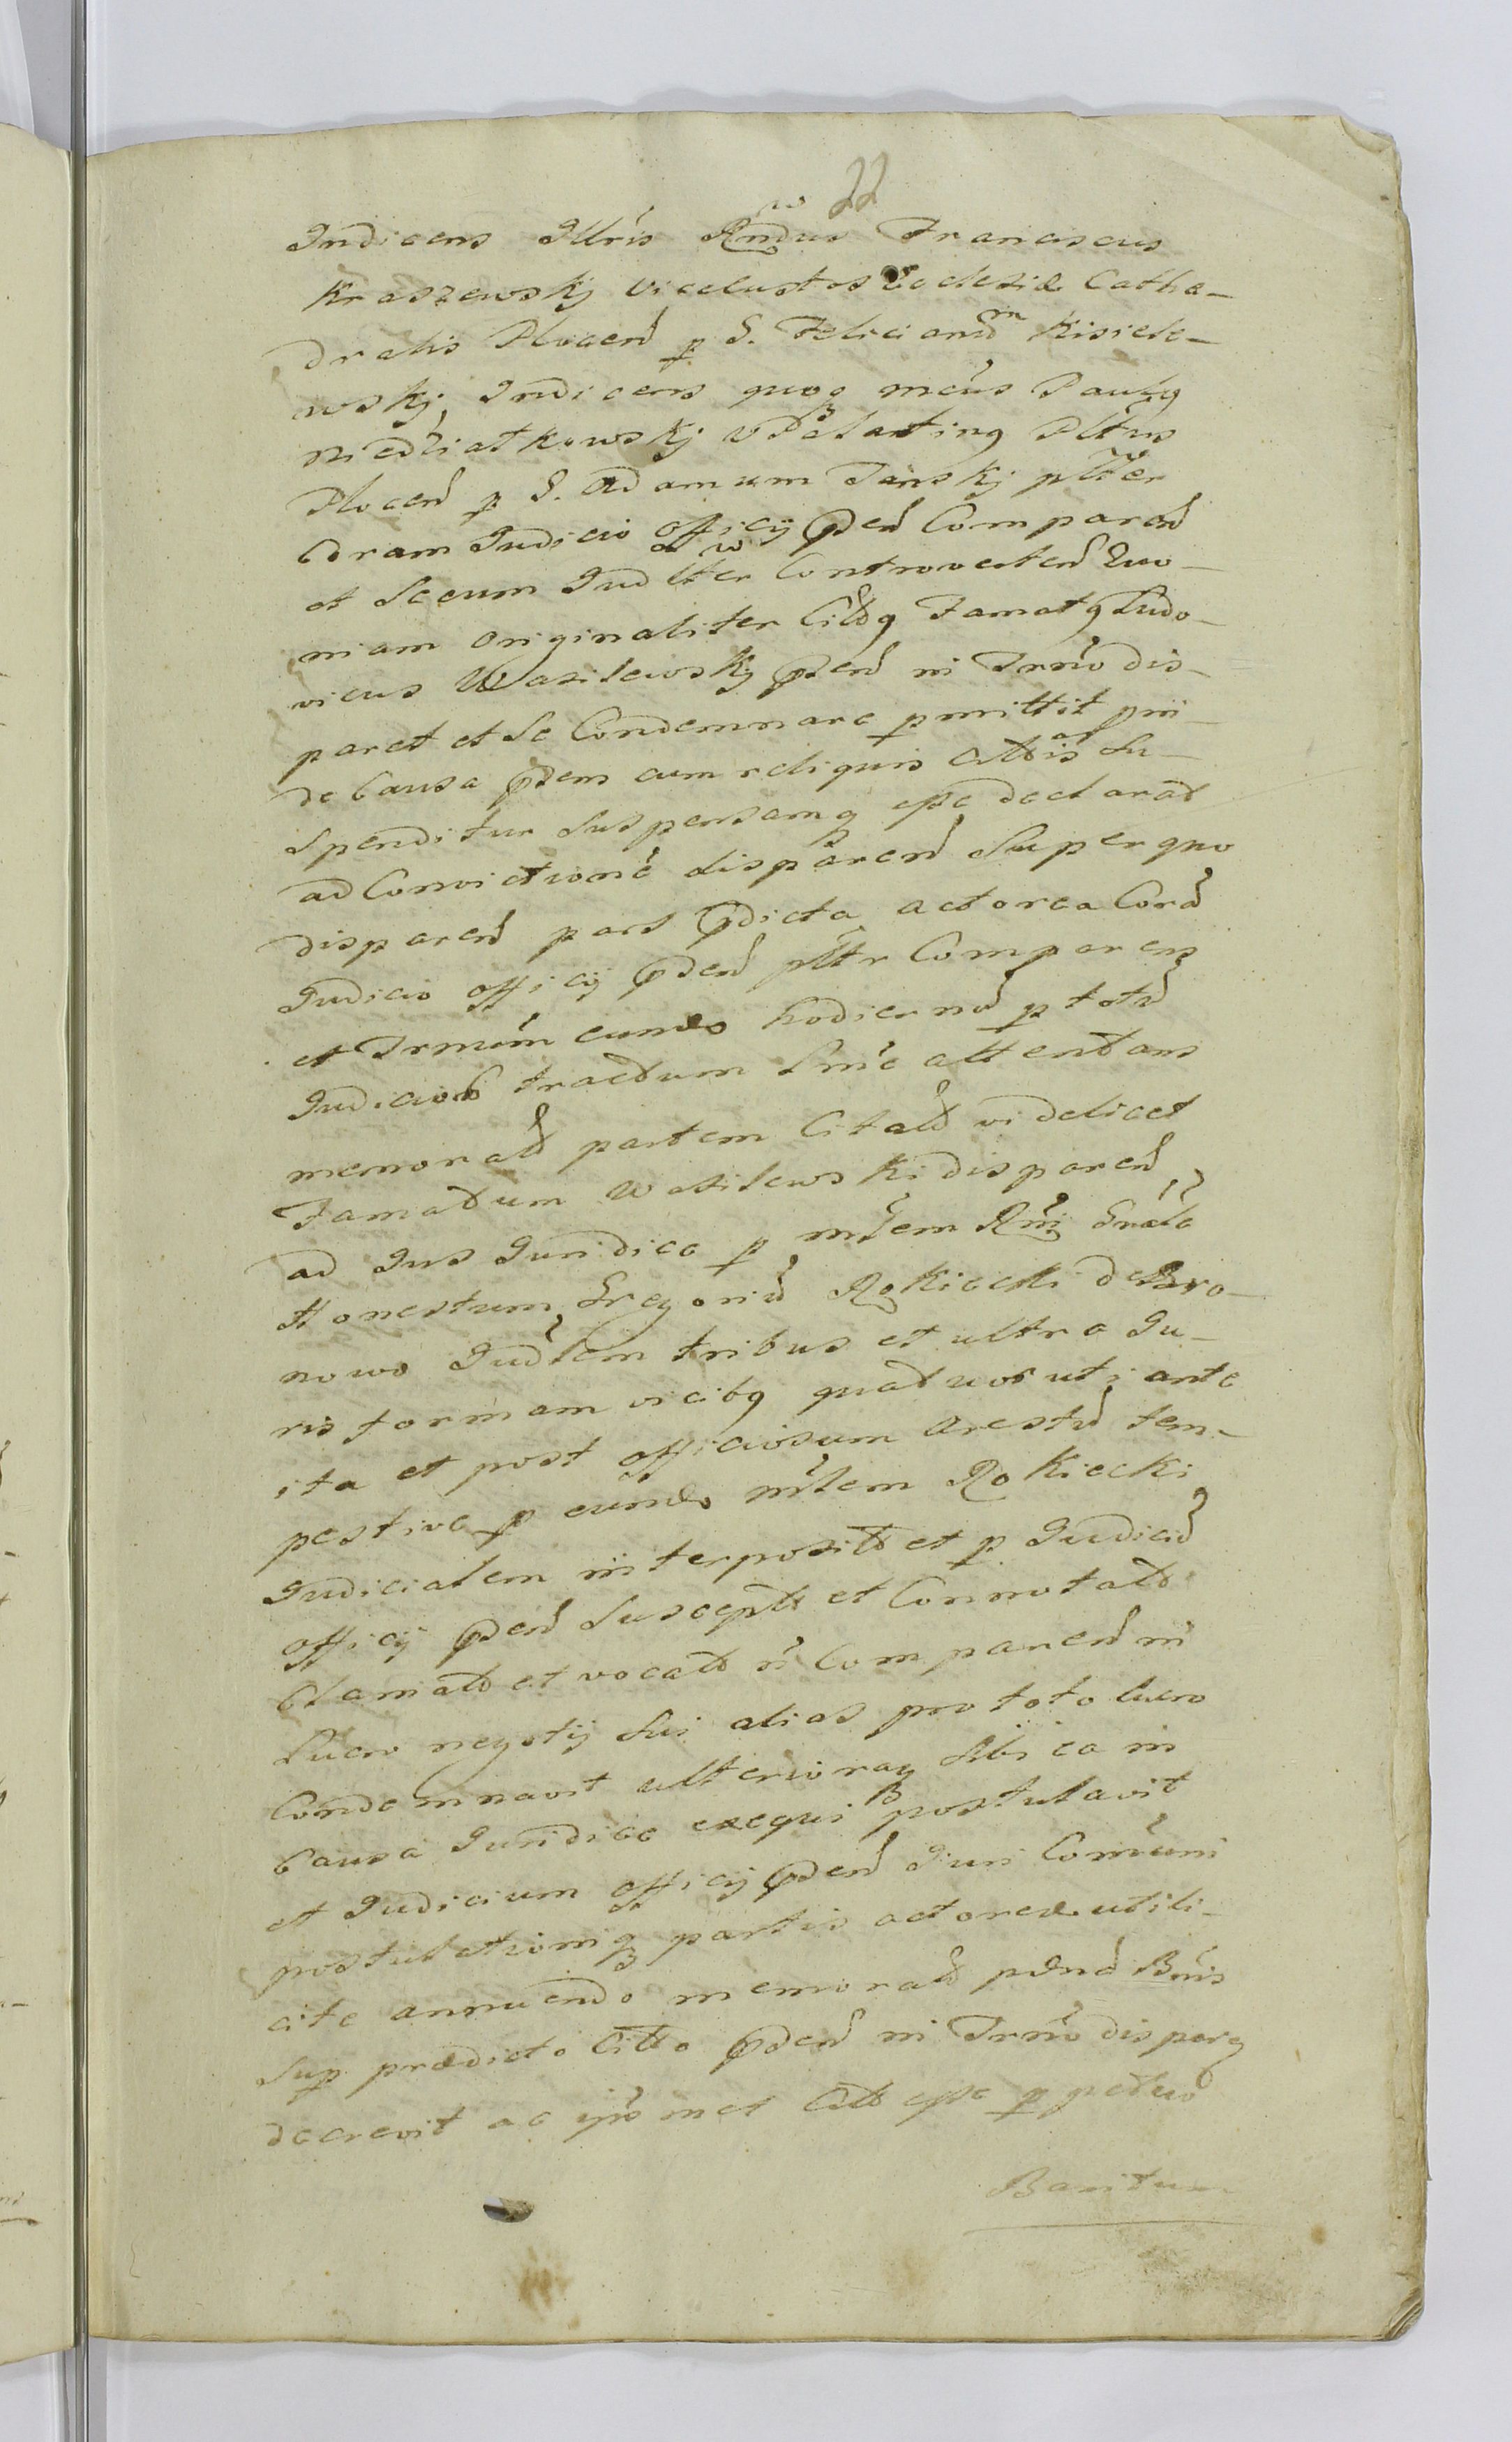 22
Indicens Illris Rndus Franciscus
Kraszewskj Vicecustos Ecclesiæ Cathe-
dralis Plocen p G. Felicianu Kisiele-
wskj, Indicens quoq mcus Paulq
Niedziatkowskj VPalatinq Pltus
Plocen p G. Adamum Janskj pltter
Coram Judicio officij pden Comparen
et secum Judltter Controverten Quo-
niam originaliter Citdq Famatq Ludo-
vicus Wasilewskj pden in Trmo dis-
paret et se Condemnare pmittit pin-
de Causa pdem cum reliquis Cittis Su-
spenditur suspensamq esse declarat
ad Convictione disparen Super quo
disparen pars pdicta actorea Cora
Judicio officij pden plttr Comparens
et Trmum eundo hodiernu p totu
Judicior tractum sme attentans
memorat partem Citatt videlicet
Famatum Wasilewski disparen
ad Jus Juridice p mtlem Rm Gnale
Honestum Gregoriu Rokicki de Bro-
nowo Judlem tribus et ultra Ju-
ris formam vicibq quatuor uti ante
ita et post officiosum arestu tem-
pestive p eundo mtlem Rokiecki
Judicialem interposit et p Judiciu
officij pden Suscept et Connotatt
Clamatt et vocatt n Comparen in
Lucro negotij sui alias pro toto lucro
Condemnavit ulterioraq sibi ea in
Causa Juridice exequi postulavit
et Judicium officij pden Juri Comuni
postulationiq partis actoreæ utili-
cite annuendo memorat pæna Bnis
sup prædicto Citto pden in Trmo disparen
decrevit ac ipsmet Citt esse ppetuo
Banitum